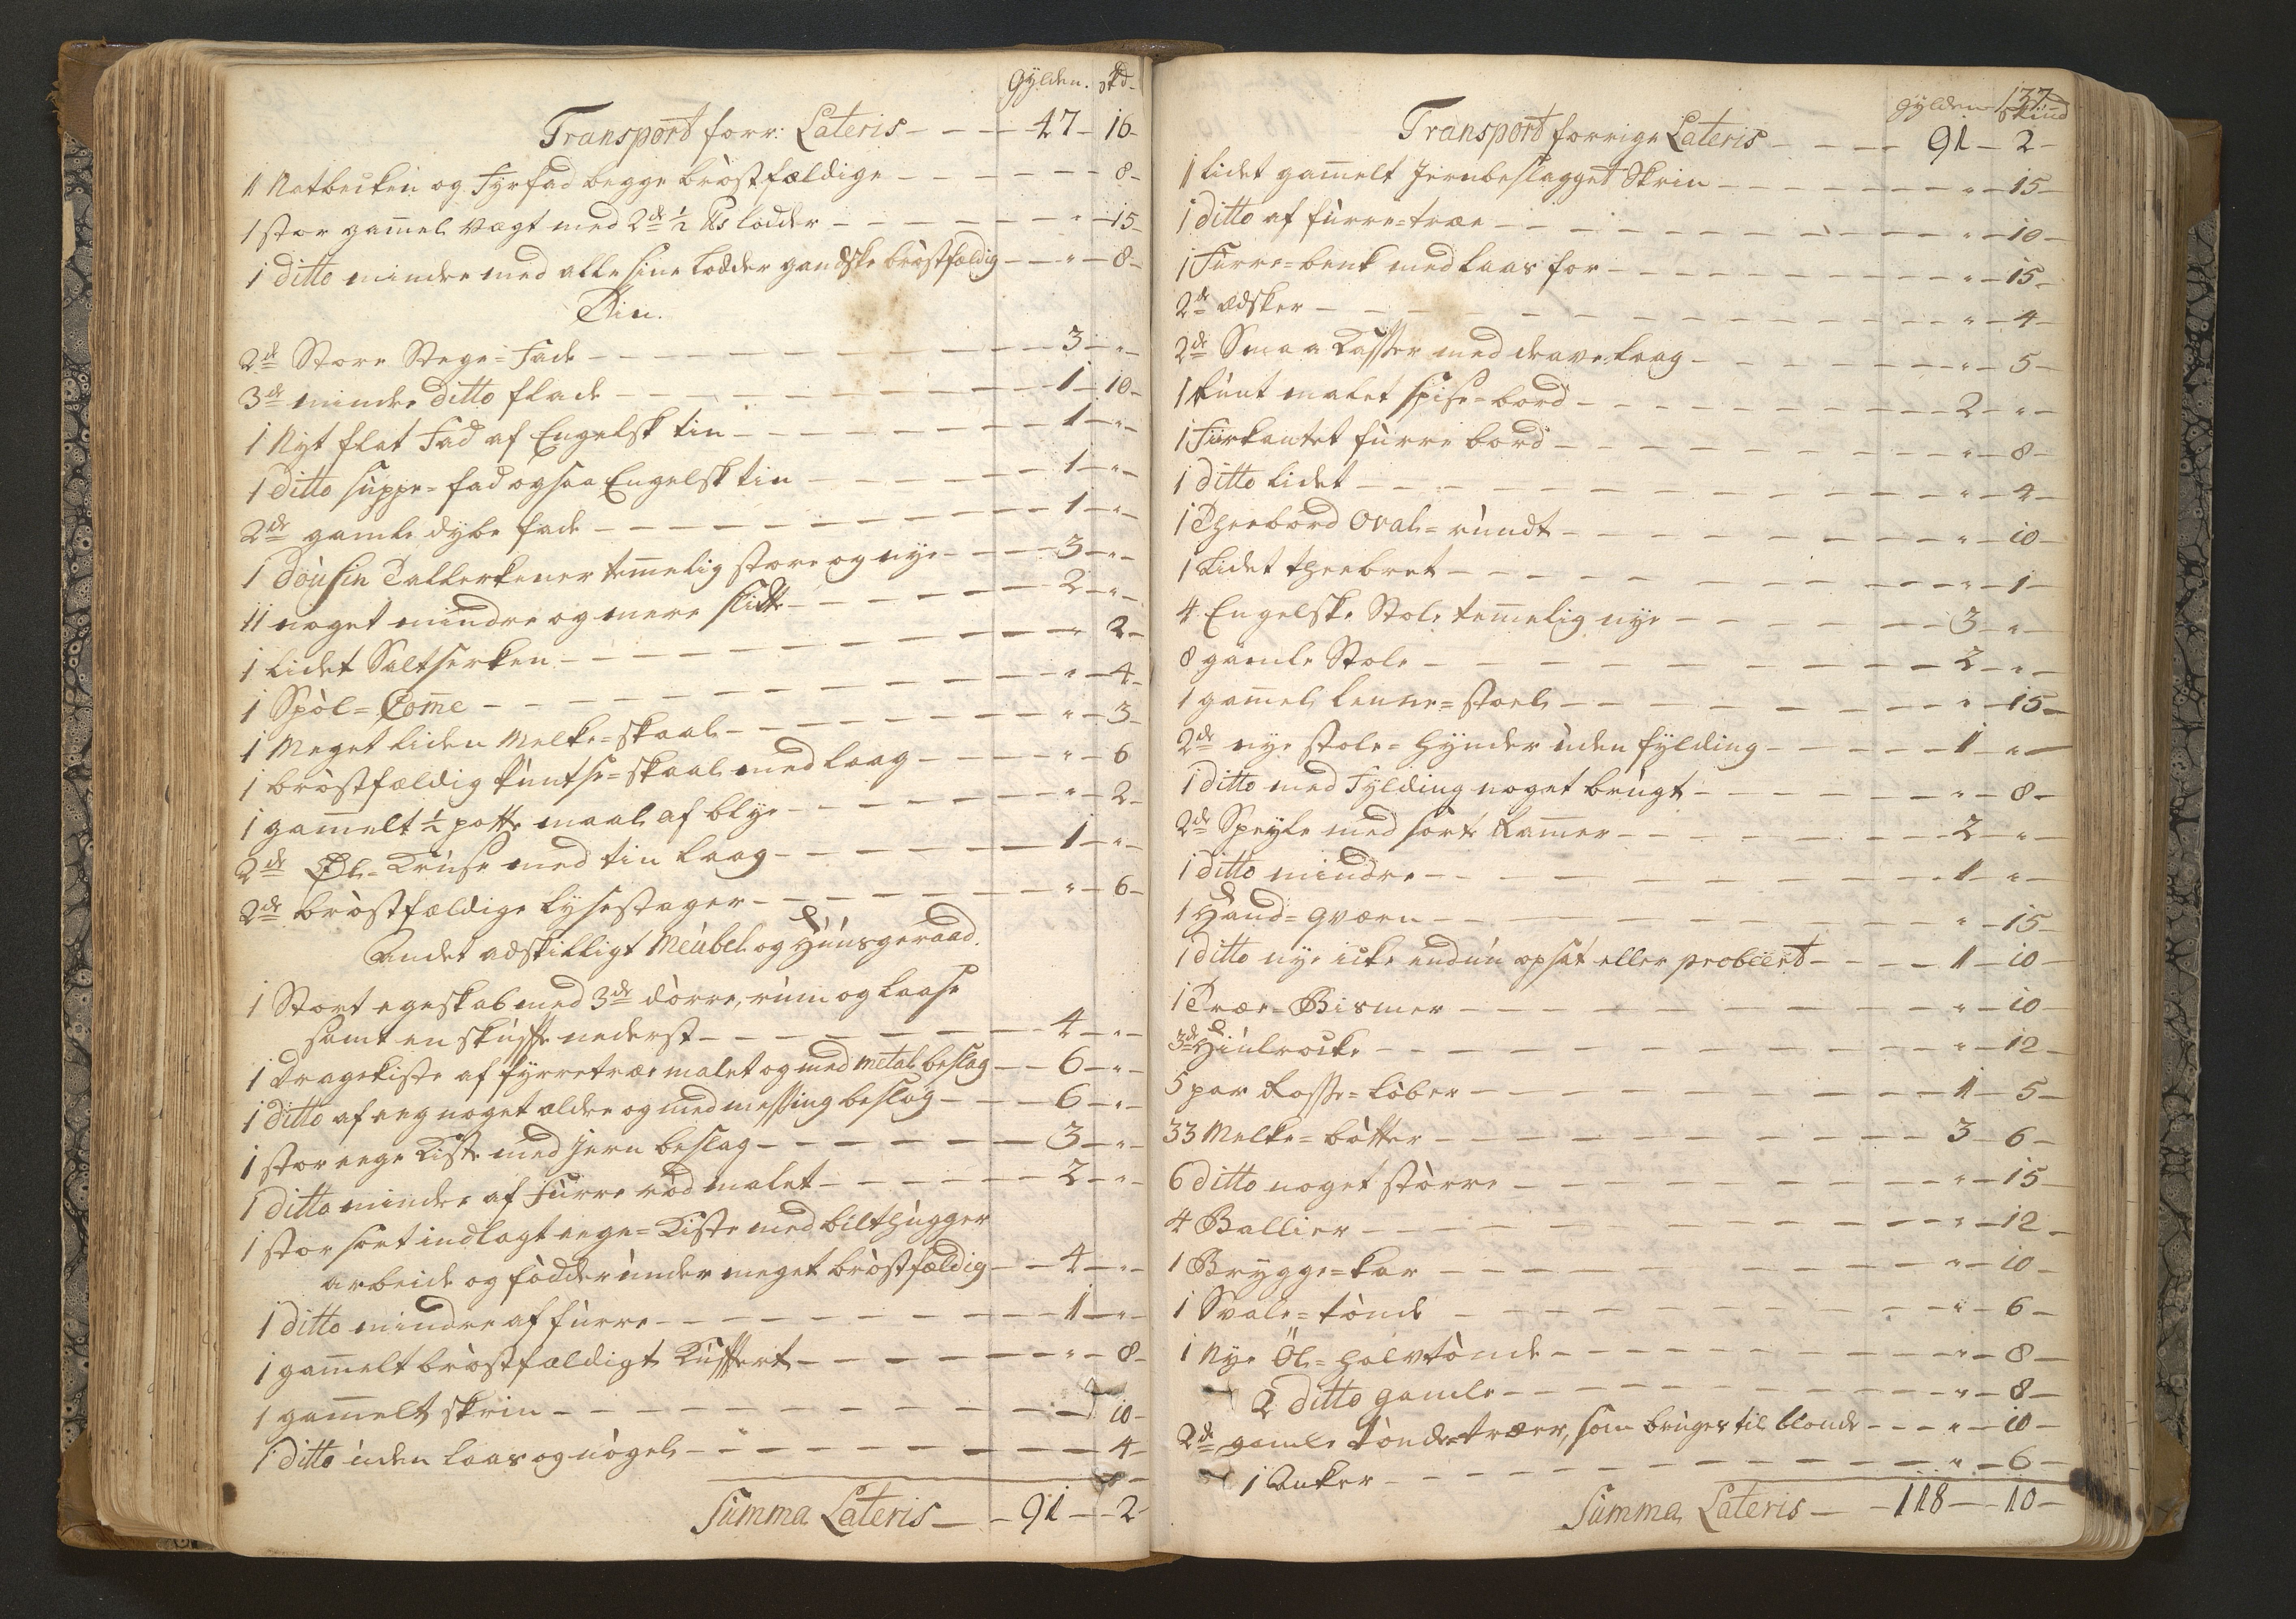 Gylden. skd
Transport forr: Lateris - - - 47 - 16 -
1 Natbecken og Fyrfad begge bröstfældige - - - 8 -
1 stor gam̅el vægt med 2de ½ lodder - - - " - 15 -
1 ditto mindre med alle sine Lodder gandske bröstfældig - - " - 8 -
Tin.
2de Store Stege=Fade - - - 3 - " -
3de mindre ditto flade - - - 1 - 10 -
1 Nyt flat Fad af Engelsk tin - - - 1 - " -
1 ditto suppe=fad ogsaa Engelsk tin - - - 1 - " -
2de gamle dybe fade - - - 1 - " -
1 Dousin Tallerkener tem̅elig store og nye - - - 3 - " -
11 noget mindre og mere slidte - - - 2 - " -
1 Lidet Saltserken - - - " 2 -
1 Spöl=Com̅e - - - " - 4 -
1 Meget liden Melke=skaal - - - " - 3 -
1 bröstfældig Puntse=skaal med laag - - - " - 6
1 gam̅elt ½ potte maal af blye - - - " - 2 -
2de Øl=Kruse med tin laag - - - 1 - " -
2de bröstfældige Lysestager - - - " - 6 -
Andet adskilligt Meubel og Huusgeraad.
1 Stort egeskab med 3de dörre, rum og laase
samt en skuffe nederst - - - 4 - " -
1 Dragekiste af fyrretræe malet og med metal beslag - - 6 - " -
1 ditto af eeg noget ældre og med messing beslag - - - 6 - " -
1 stor eege Kiste med jern beslag - - - 3 - " -
1 ditto mindre af Furre röd malet - - - 2 - " -
1 stor sort indlagt eege=Kiste med bilthugger
arbeide og födder under meget bröstfældig - - 4 - " -
1 ditto mindre af furre - - - 1 - " -
1 gam̅elt bröstfældigt Kuffert - - - " - 8 -
1 gam̅elt skrin - - - 10 -
1 ditto uden laas og nögel - - - 4 -
Summa Lateris - - 91 - - 2 -
137
Gylden skind
Transport forrige Lateris - - - 91 - 2 -
1 lidet gam̅elt Jernbeslagget Skrin - - - " - 15 -
1 ditto af furre=træe - - - " - 10 -
1 Furre=benk med laas for - - - " - 15 -
2de ædsker - - - " - 4 -
2de Smaa Casser med drave laag - - - " - 5 -
1 Runt malet spise=bord - - - 2 - " -
1 Fiirkantet furre bord - - - " - 8 -
1 ditto lidet - - - " - 4 -
1 Theebord Oval=rundt - - - " - 10 -
1 Lidet theebret - - - " - 1 -
4 Engelske Stole tem̅elig nye - - - 3 - " -
8 gamle Stole - - - 2 - " -
1 gam̅el lenne=stoel - - - " - 15 -
2de nye stole=Hynder uden fylding - - - 1 - " -
1 ditto med Fylding noget brugt - - - " - 8 -
2de Speyle med sorte Ram̅er - - - 2 - " -
1 ditto mindre - - - 1 - " -
1 Hand=qværn - - - " - 15 -
1 ditto nye icke endnu opsat eller probeert - - - 1 - 10 -
1 Træe-Bismer - - - " - 10 -
3de Hiulrocke - - - " - 12 -
5 par Kosse=löber - - - 1 - 5 -
33 Melke=bötter - - - 3 - 6 -
6 ditto noget större - - - " - 15 -
4 Ballier - - - " - 12 -
1 Brygge=kar - - - " - 10 -
1 Svale=tönde - - - " - 6 -
1 Nye Öl=halvtönde - - - " - 8 -
2 ditto gamle - - - " - 8 -
2de gamle tönde=træer, som bruges til blande - - - " - 10 -
1 Anker - - - " - 6 -
Summa Lateris - - 118 - - 10 -